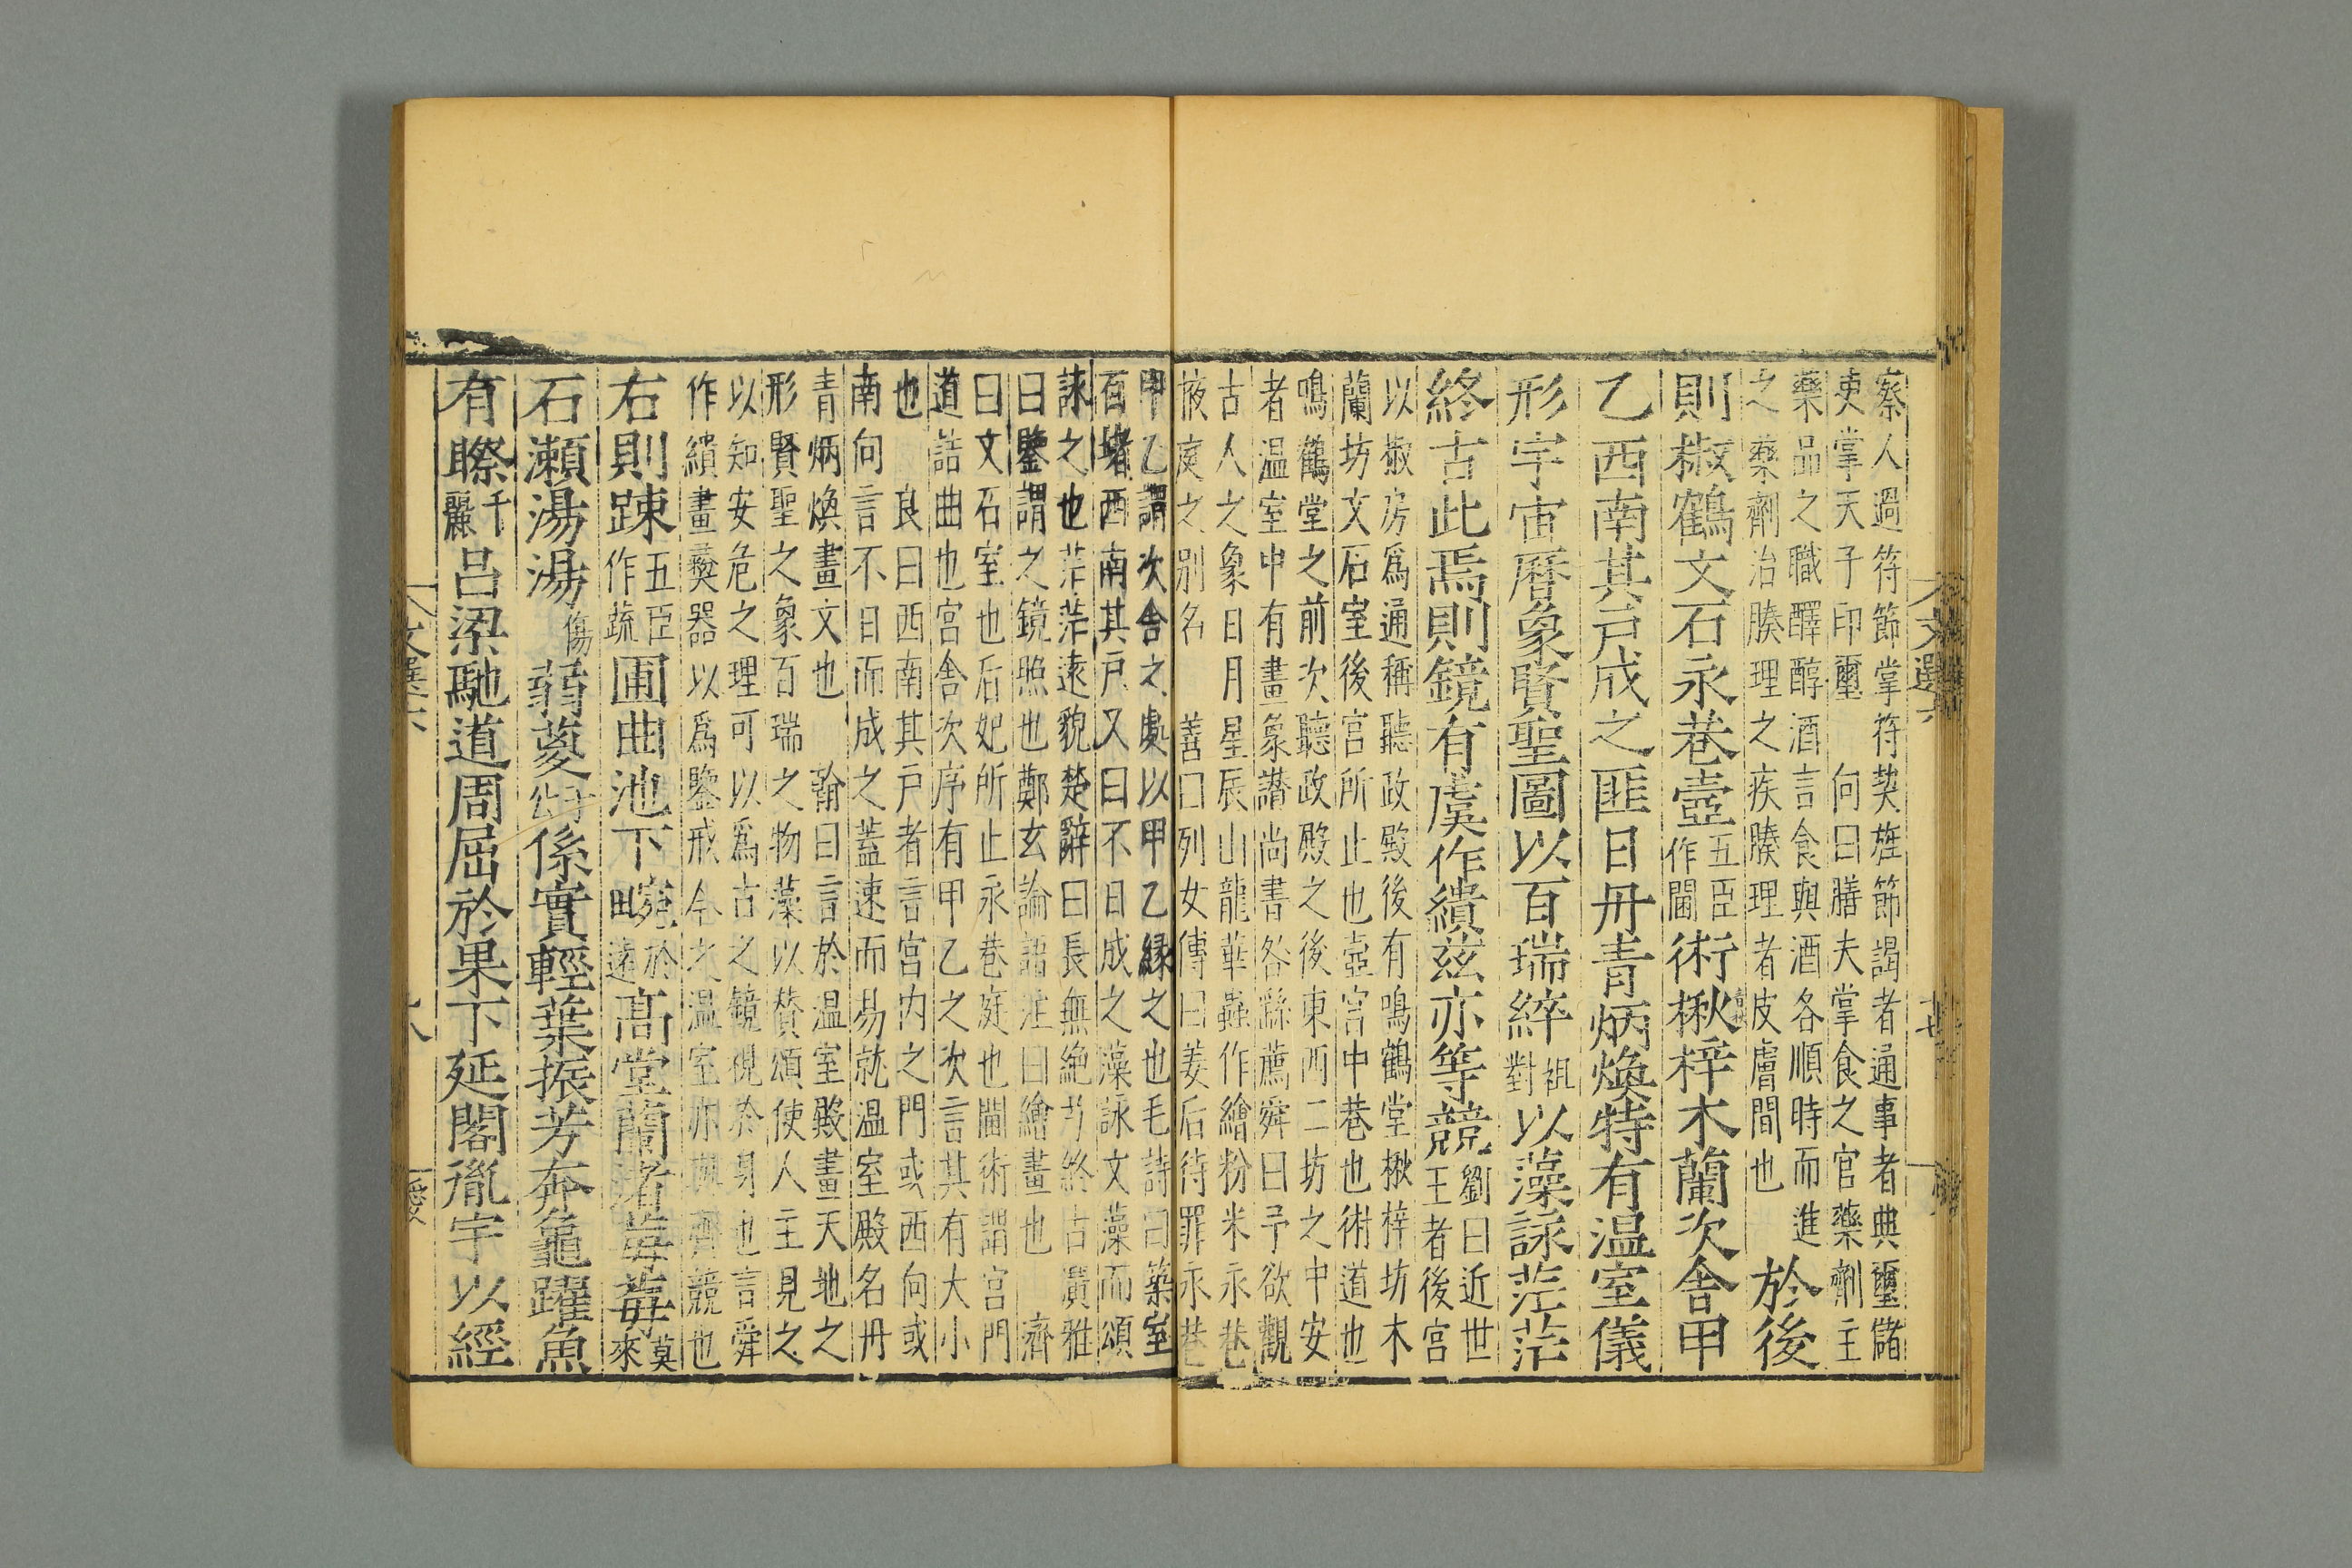 察人過符節掌符契旌節謁者通事者典璽儲
吏掌天子印璽　向曰膳夫掌食之官藥劑主
藥品之職醳醇酒言食與酒各順時而進
之藥劑治腠理之疾腠理者皮膚間也
於後
則椒鶴文石永巷壼五臣作閫術楸梓木蘭次舍甲
乙西南其戸成之匪日丹青炳煥特有温室儀
形宇宙曆象賢聖圖以百瑞綷祖對以藻詠茫茫
終古此焉則鏡有虞作繢兹亦等競劉曰近世王者後宮
以椒房爲通稱聽政殿後有鳴鶴堂楸梓坊木
蘭坊文石室後宮所止也壼宮中巷也術道也
鳴鶴堂之前次聽政殿之後東西二坊之中安
者温室中有畫象讃尚書咎繇薦舜曰予欲觀
古人之象日月星辰山龍華蟲作繪粉米永巷
掖庭之别名　善曰列女傳曰姜后待罪永巷
甲乙謂次舍之處以甲乙縁之也毛詩曰築室
百堵西南其戸又曰不日成之藻詠文藻而頌
詠之也茫茫遠貌楚辭曰長無絶兮終古廣雅
曰鑒謂之鏡照也鄭玄論語注曰繪畫也　濟
曰文石室也后妃所止永巷庭也閫術謂宫門
道詰曲也宫舍次序有甲乙之次言其有大小
也　良曰西南其戸者言宫内之門或西向或
南向言不日而成之蓋速而易就温室殿名丹
青炳煥畫文也　翰曰言於温室殿畫天地之
形賢聖之象百瑞之物藻以賛頌使人主見之
以知安危之理可以爲古之鏡視於身也言舜
作繢畫彝器以爲鑒戒今之温室亦與齊競也
右則踈五臣作蔬圃曲池下畹於遠高堂蘭渚莓莓莫來
石瀬湯湯傷弱葼係實輕葉振芳奔龜躍魚
有䁽千麗吕梁馳道周屈於果下延閣胤宇以經
文選六